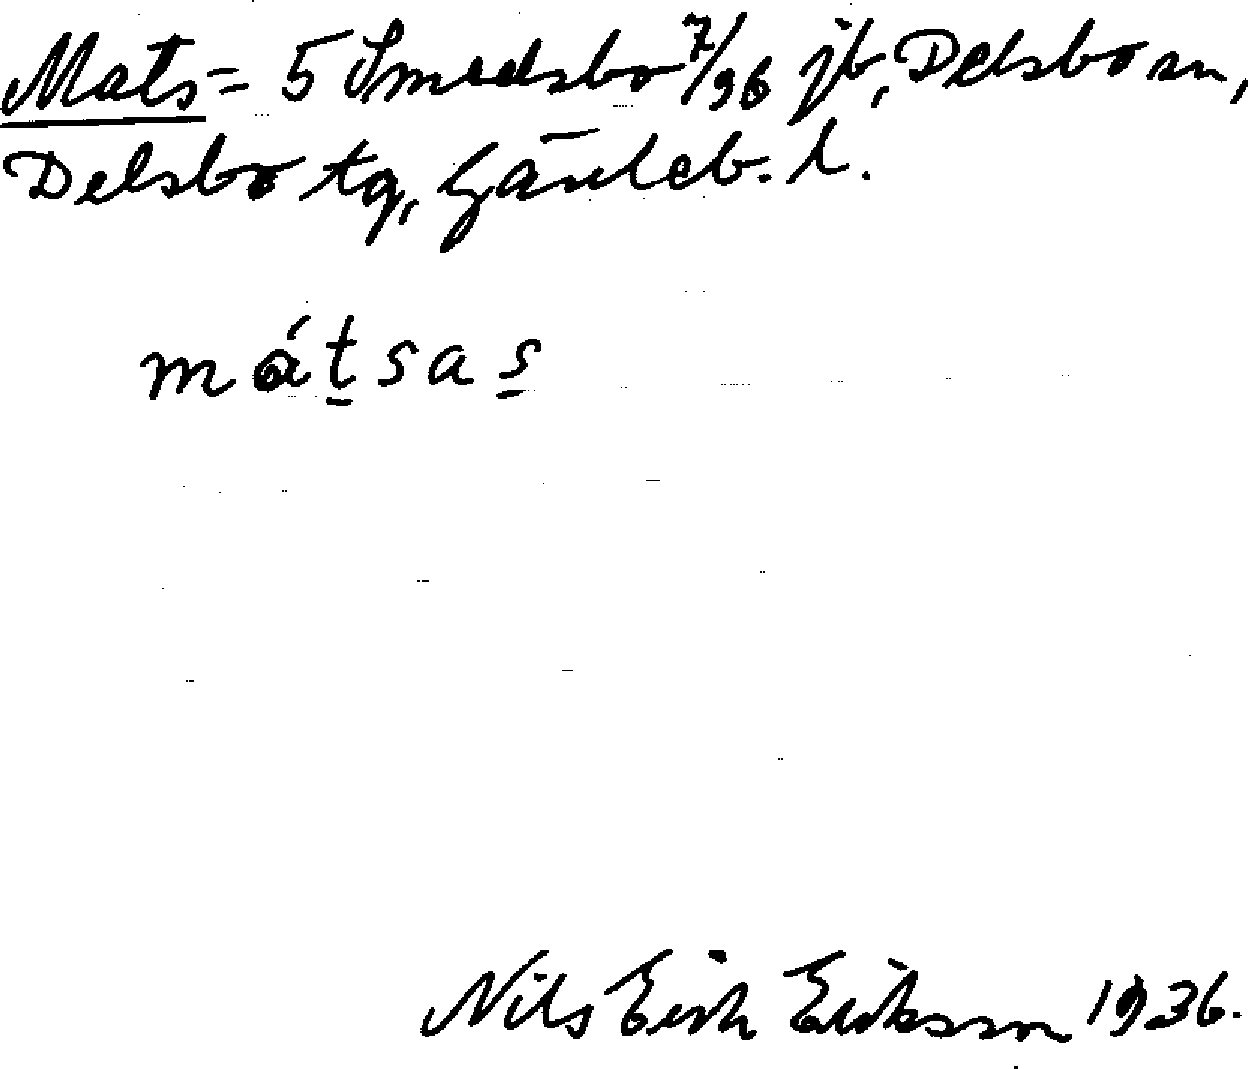 Mats = 5 Smedsbo 7/96 jb, Delsbo sn,
Delsbo tg, Gävleb. l.
mátsas
Nils Erik Eriksson 1936.